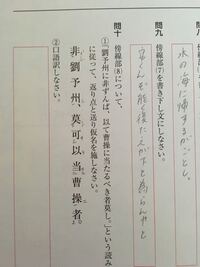 水の海に帰するがごとし、
問九 傍線部(7)を書き下し文にしなさい。
安んぞ能く復た之が下と為らんやと
問十 傍線部(8)について、
①「劉予州に非ずんば、以て曹操に当たるべき者莫し。」という読み
に従って、返り点と送り仮名を施しなさい。
非劉予州、莫可以当曹操者。
②口語訳しなさい。